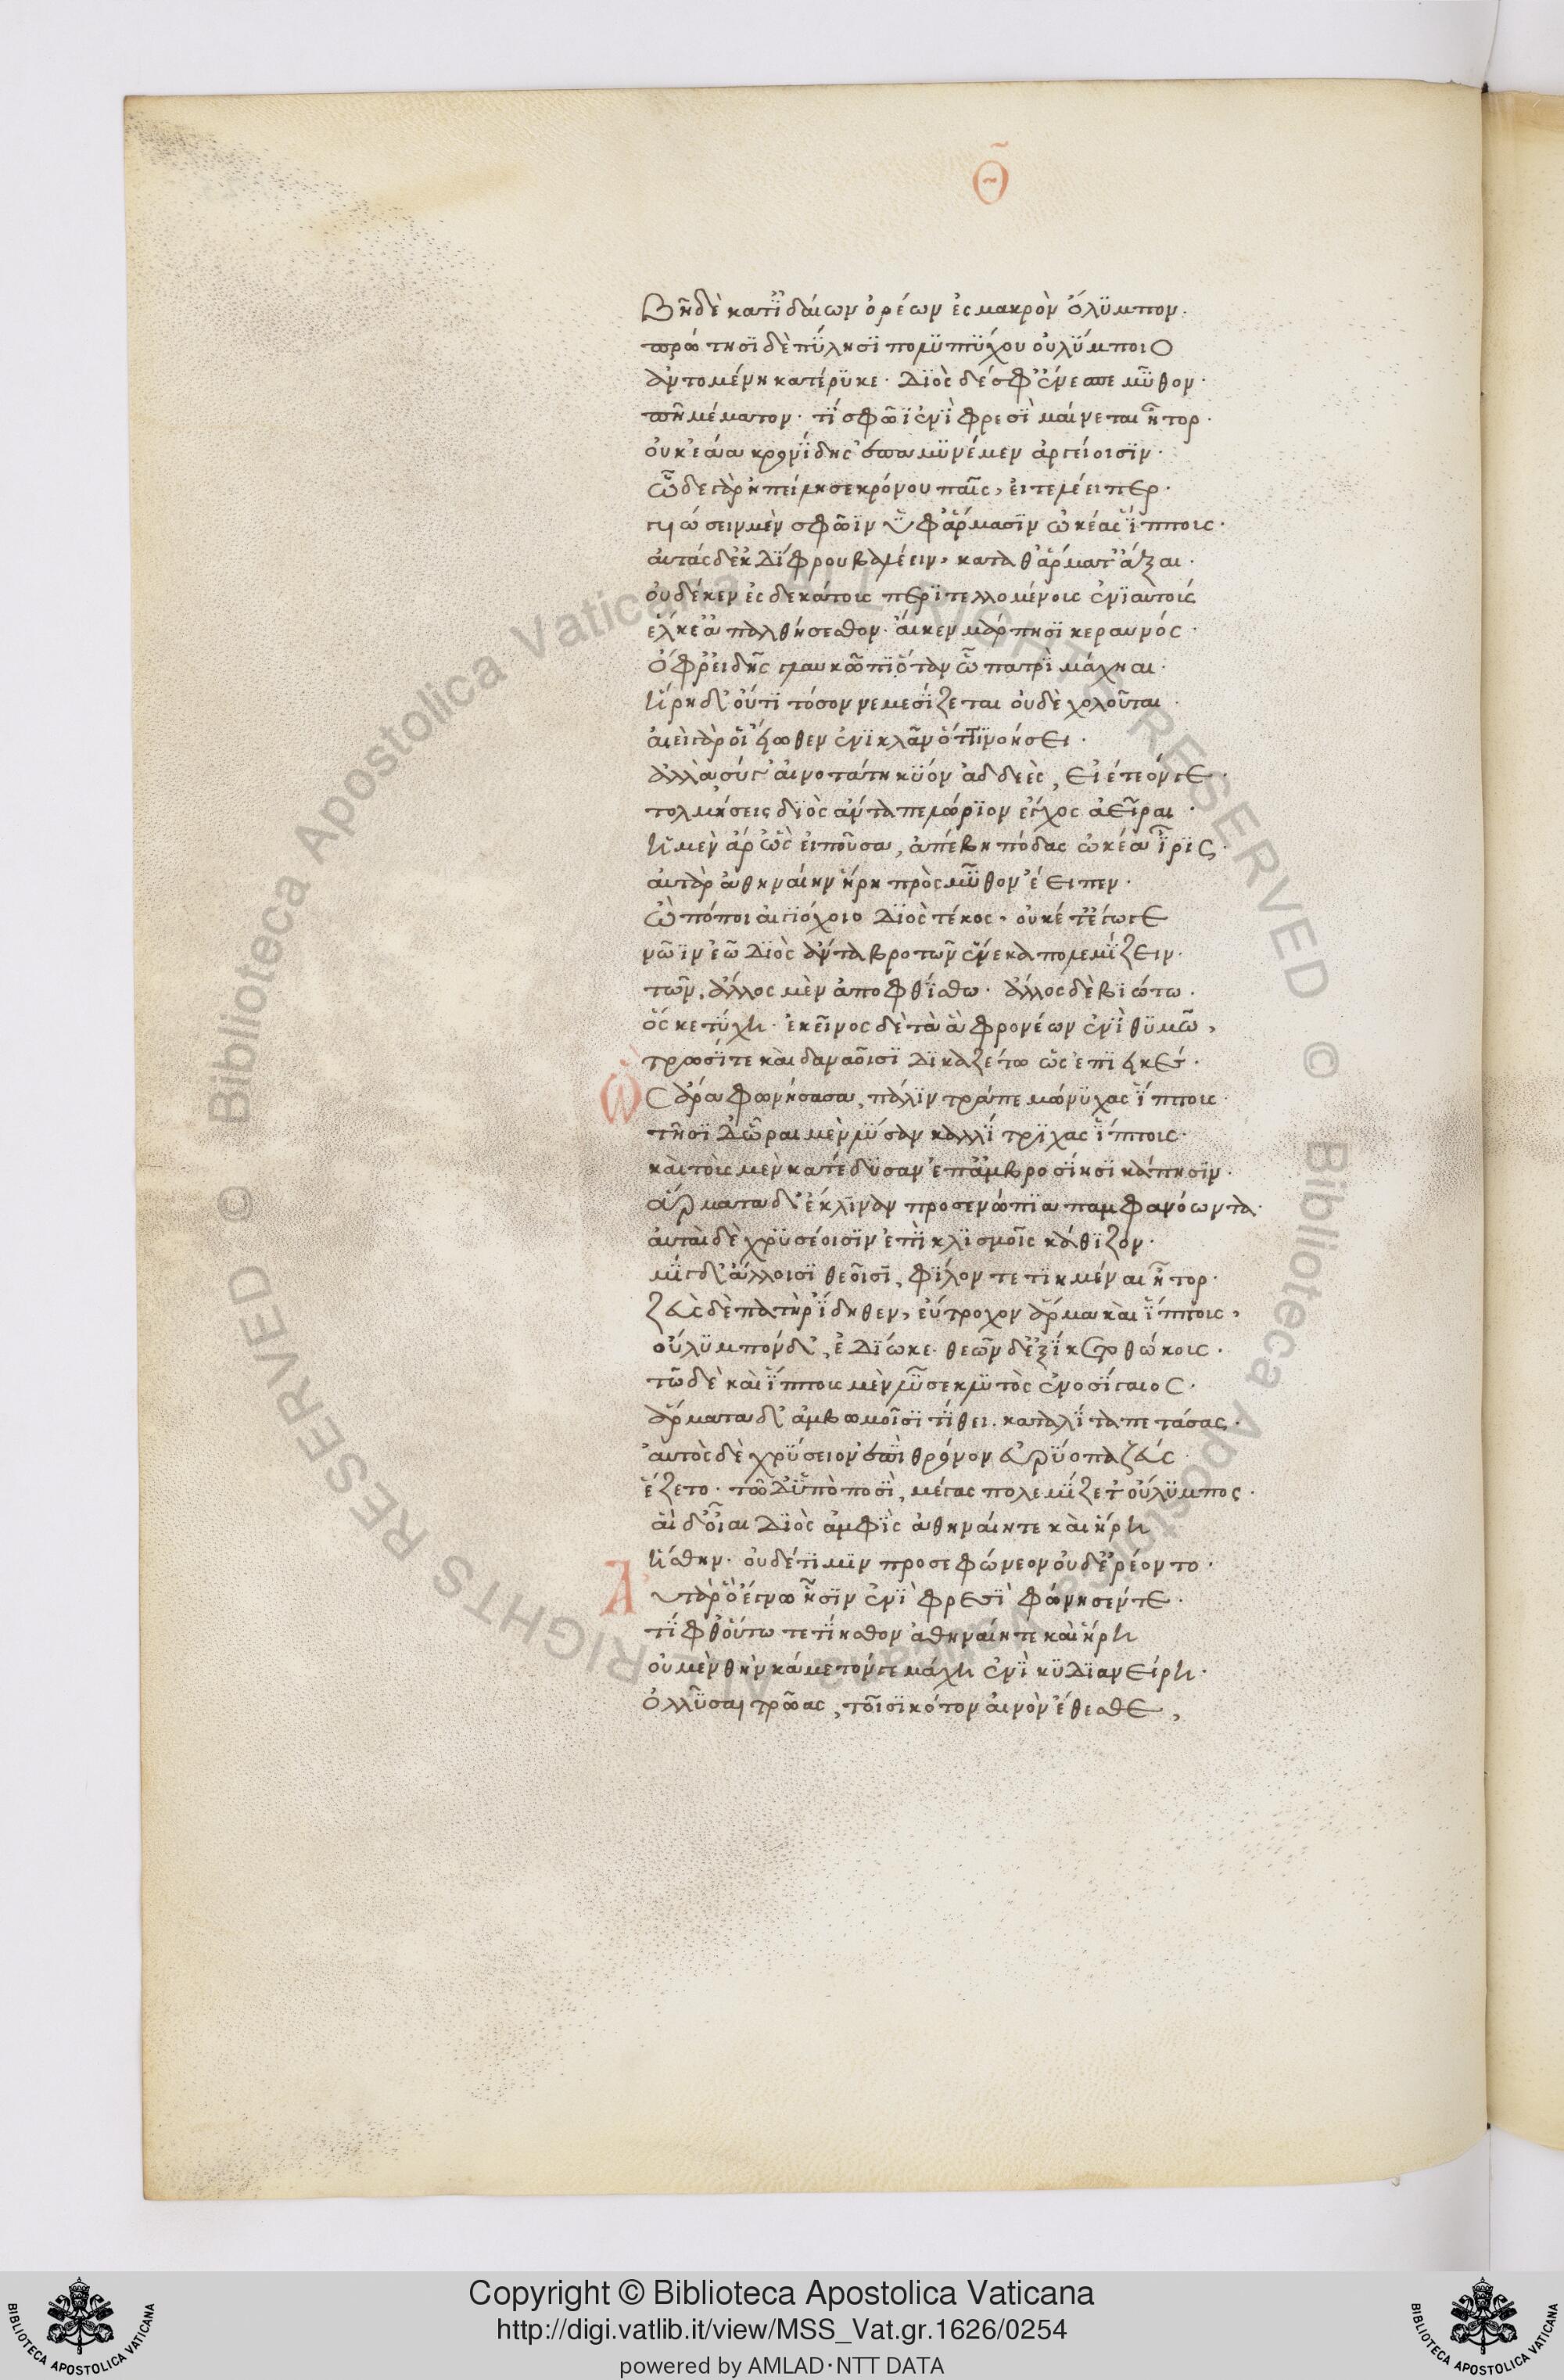 Θ
Βῆ δὲ κατ' ἰδαίων ὀρέων ἐς μακρὸν ὄλυμπον.
πρώτησι δὲ πύλησι πολυπτύχου οὐλύμποιο
ἀντομένη κατέρυκε· Διὸς δέ σφ' ἔννεπε μῦθον·
πῆ μέματον· τί σφῶϊ ἐνὶ φρεσὶ μαίνεται ἦτορ·
οὐκ ἐάα κρονίδης ἐπαμυνέμεν ἀργείοισιν·
ὧδε γὰρ ἠπείλησε κρόνου παῖς, εἰ τελέει περ·
γυιώσειν μὲν σφῶϊν ὑφ' ἅρμασιν ὠκέας ἵππους·
αὐτὰς δ' ἐκ Δίφρου βαλέειν, κατὰ θ' ἅρματ' ἄξαι·
οὐδέ κεν ἐς δεκάτους περιτελλομένους ἐνιαυτοὺς
ἕλκε' ἀπαλθήσεσθον· ἅ κεν μάρπτησι κεραυνός·
ὄφρ' εἰδῇς γλαυκῶπι ὅταν ὧ πατρὶ μάχηαι·
ἥρη δ' οὔτι τόσον νεμεσίζεται οὐδὲ χολοῦται·
αἰεὶ γάρ οἱ ἔωθεν ἐνικλᾶν ὅττι νοήσει·
ἀλλὰ σύ γ' αἰνοτάτη κύον ἀδδεὲς, εἰ ἐτεόν γε·
τολμήσεις διὸς ἄντα πελώριον ἔγχος ἀεῖραι·
ἡ μὲν ἄρ' ὣς εἰποῦσα, ἀπέβη πόδας ὠκέα ἶρις·
αὐτὰρ ἀθηναίην ἥρη πρὸς μῦθον ἔειπεν·
Ὢ πόποι αἰγιόχοιο Διὸς τέκος· οὐκέτ' ἔγωγε
νῶϊν ἐῶ Διὸς ἄντα βροτῶν ἕνεκα πολεμίζειν·
τῶν ἄλλος μὲν ἀποφθίσθω· ἄλλος δὲ βιώτω·
ὅς κε τύχη· ἐκεῖνος δὲ τὰ ἃ φρονέων ἐνὶ θυμῶ,
τρωσί τε καὶ δαναοῖσι Δικαζέτω ὡς ἐπιεικές·
Ὣς ἄρα φωνήσασα, πάλιν τράπε μώνυχας ἵππους·
τῆσι Δ' ὧραι μὲν λῦσαν καλλίτριχας ἵππους·
καὶ τοὺς μὲν κατέδυσαν ἐπ' ἀμβροσίησι κάπησιν·
ἅρματα δ' ἔκλιναν προσενώπια παμφανόωντα·
αὐταὶ δὲ χρυσέοισιν ἐπὶ κλισμοῖς κάθιζον·
μίγδ' ἄλλοισι θεοῖσι, φίλον τετιημέναι ἦτορ·
ζεὺς δὲ πατὴρ ἴδηθεν, εὔτροχον ἅρμα καὶ ἵππους,
οὔλυμπόνδ', ἐδίωκε· θεῶν δ' ἐξίκετο θώκους·
τῶ δὲ καὶ ἵππους μὲν λῦσε κλυτὸς ἐνοσίγαιος·
ἅρματα δ' ἀμβωμοῖσι τίθει· κατὰ λίτα πετάσας·
αὐτὸς δὲ χρύσειον ἐπὶ θρόνον εὐρύοπα ζεὺς
ἕζετο· τῶ Δ' ὑπὸ ποσὶ, μέγας πολεμίζετ' οὔλυμπος·
αἱ δ' οἶαι Διὸς ἀμφὶς ἀθηναίη τε καὶ ἥρη
ἥσθην· οὐδέ τι μιν προσεφώνεον οὐδ' ἐρέοντο·
Αὐτὰρ ὃ ἔγνω ᾗσιν ἐνὶ φρεσὶ φώνησέν τε·
τίφθ' οὕτω τετίησθον ἀθηναίη τε καὶ ἥρη
οὐ μὲν θὴν κάμετόν γε μάχη ἐνὶ κυδιανείρη·
ὀλλῦσαι τρῶας, τοῖσι κότον αἰνὸν ἔθεσθε,
© Biblioteca Apostolica Vaticana ALL RIGHTS RESERVED © Biblioteca Apostolica Vaticana ALL RIGHTS RESERVED
Copyright © Biblioteca Apostolica Vaticana
http://digi.vatlib.it/view/MSS_Vat.gr.1626/0254
powered by AMLAD·NTT DATA
BIBLIOTECA APOSTOLICA VATICANA
BIBLIOTECA APOSTOLICA VATICANA